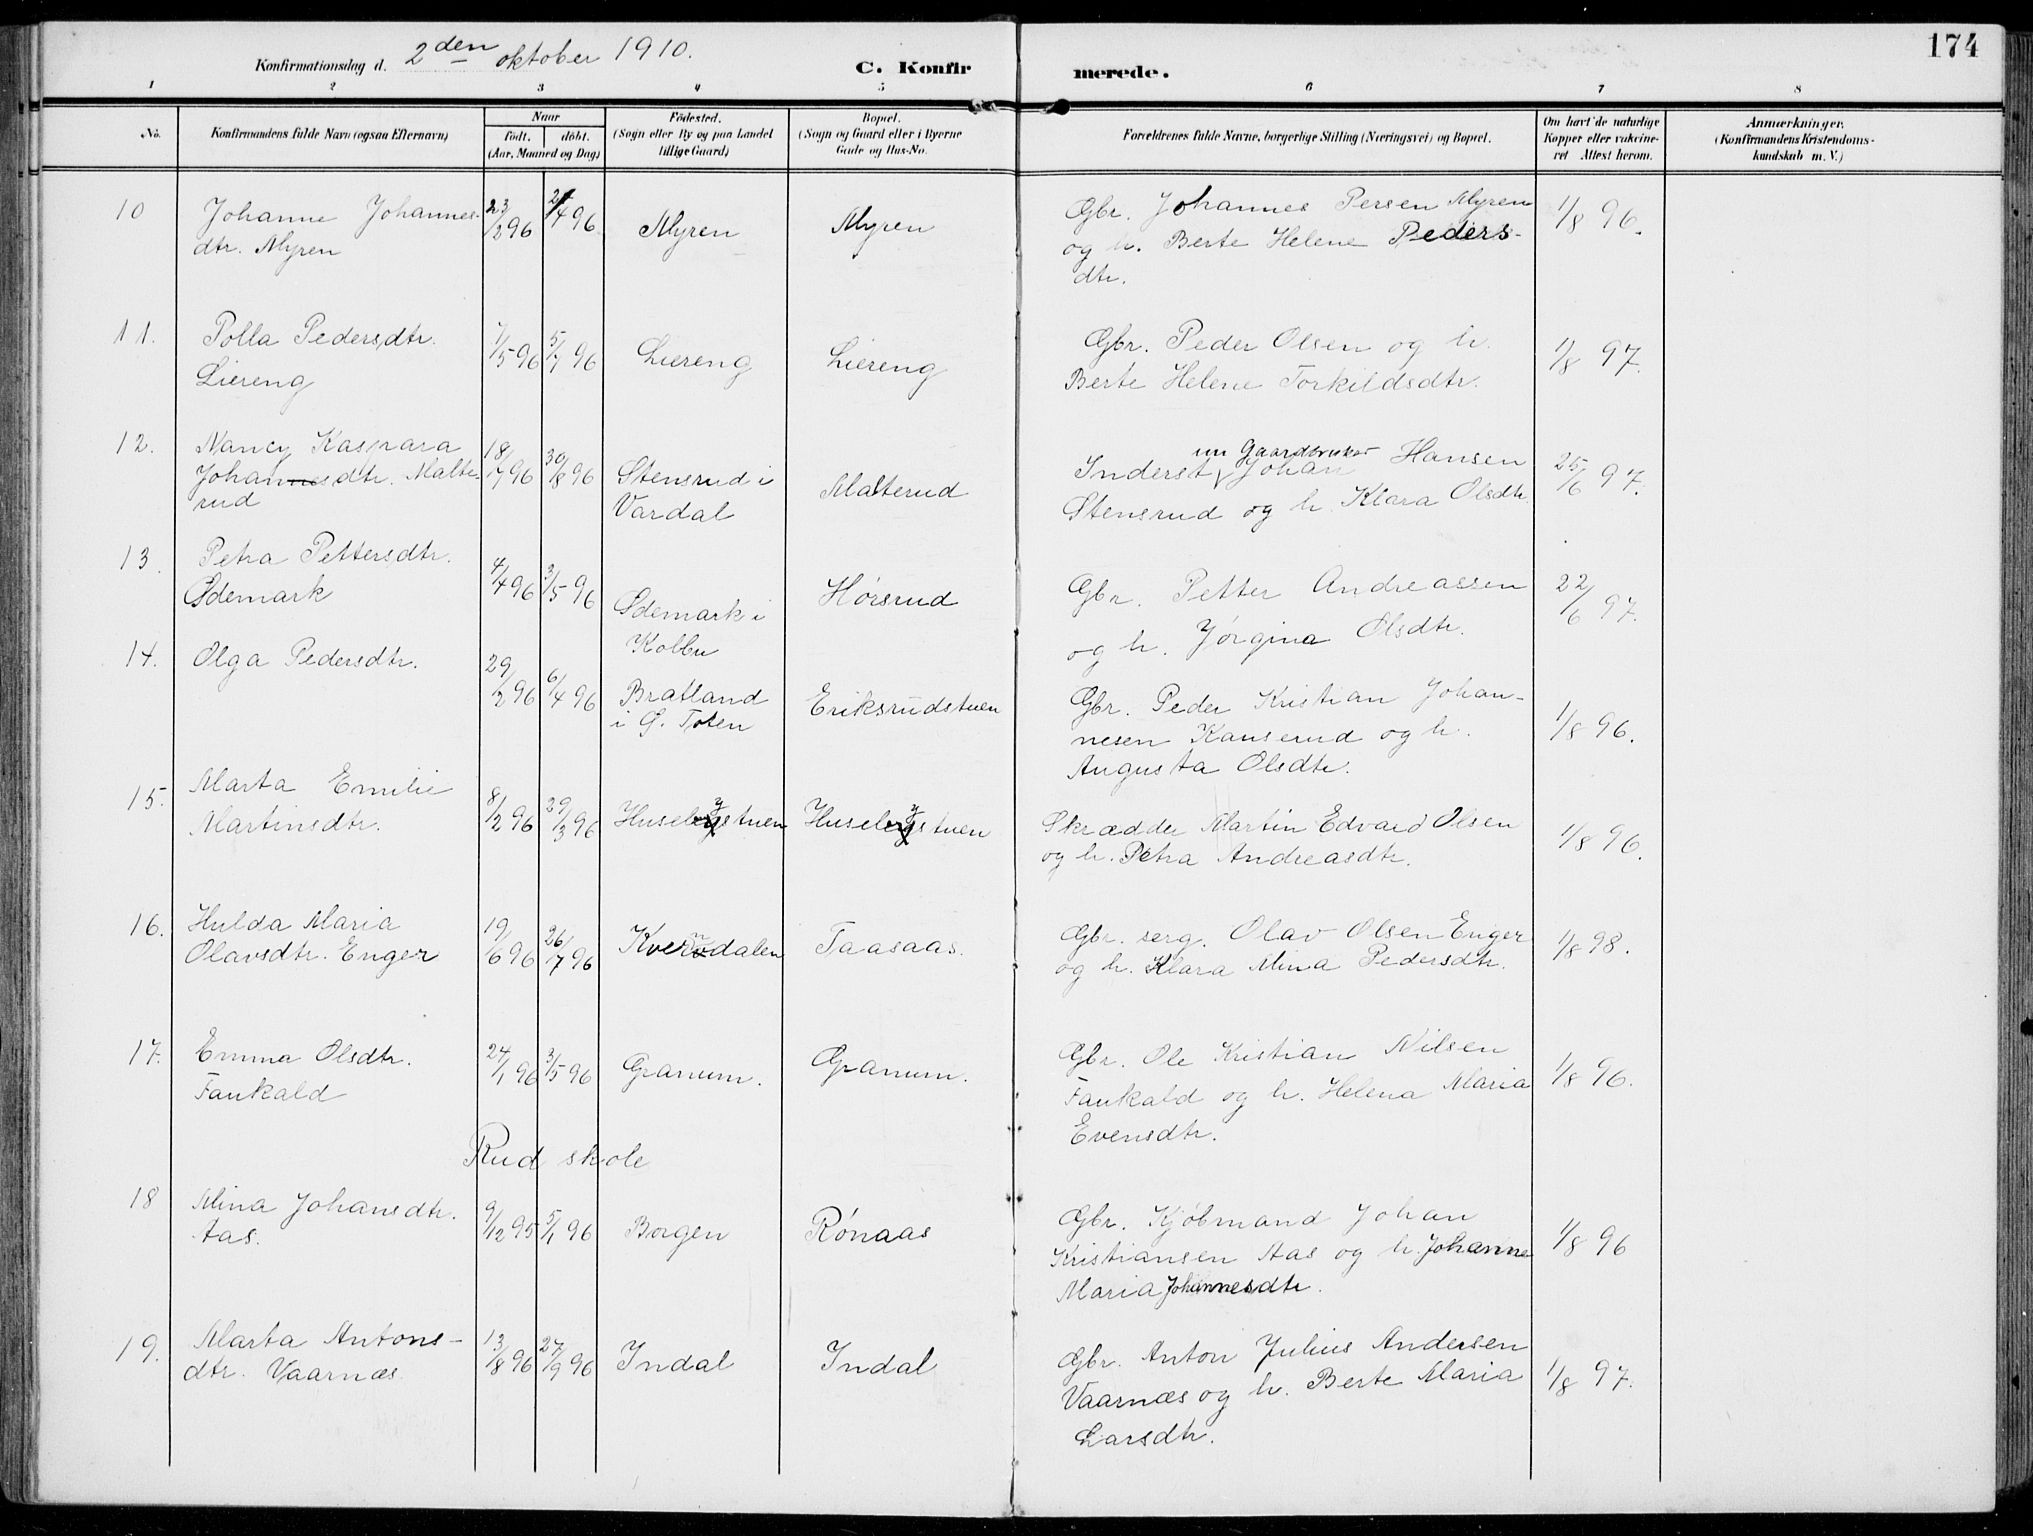 174
Konfirmationsdag d. 2den oktober 1910.
C. Konfirmerede.
1 2 3 4 5 6 7 8
No. Konfirmandens fulde Navn (ogsaa Efternavn) Naar født. døbt. (Aar, Maaned og Dag) Fødested. (Sogn eller By og paa Landet tillige Gaard) Bopæl. (Sogn og Gaard eller i Byerne Gade og Hus-No. Forældrenes fulde Navne, borgerlige Stilling (Næringsvei) og Bopæl. Om havt de naturlige Kopper eller vakcineret Attest herom. Anmærkninger. (Konfirmandens Kristendomskundskab m. V.)
10 Johanne Johannes- 23/2 96 /4 96 Myren Myren Gbr. Johannes Persen Myren 1/8 96.
dtr. Myren og h. Berte Helene Peders-
dtr.
11. Polla Pedersdtr. 7/5 96 5/7 96 Liereng Liereng Gbr. Peder Olsen og h. 1/8 97.
Liereng Berte Helene Torkildsdtr.
12. Nancy Kaspara 18/7 96 30/8 96 Stensrud i Malterud Inderst, nu Gaardbruker Johan Hansen 25/6 97.
Johannesdtr. Malte- Vardal Stensrud og h. Klara Olsdtr.
rud
13. Petra Pettersdtr. 4/4 96 3/5 96 Ødemark i Hørsrud Gbr. Petter Andreassen 22/6 97.
Ødemark Kolbu og h. Jørgina Olsdtr.
14. Olga Pedersdtr. 29/2 96 6/4 96 Bratland Eriksrudstuen Gbr. Peder Kristian Johan- 1/8 96.
i Ø. Toten nesen Kauserud og h.
Augusta Olsdtr.
15. Marta Emilie 8/2 96 29/3 96 Huselbystuen Huselbystuen Skrædder Martin Edvard Olsen 1/8 96.
Martinsdtr. og h. Petra Andreasdtr.
16. Hulda Maria 19/6 96 26/7 96 Kverndalen Taasaas. Gbr. serg. Olav Olsen Enger 1/8 98.
Olavsdtr. Enger og h. Klara Mina Pedersdtr.
17. Emma Olsdtr. 24/1 96 3/5 96 Granum. Granum. Gbr. Ole Kristian Nilsen 1/8 96.
Faukald Faukald og h. Helena Maria
Evensdtr.
Rud skole
18 Mina Johansdtr. 9/12 95 5/1 96 Borgen Rønaas Gbr. Kjøbmand Johan 1/8 96
Aas. Kristiansen Aas og h. Johanne
Maria Johannesdtr.
19. Marta Antons- 13/8 96 27/9 96 Indal Indal Gbr. Anton Julius Andersen 1/8 97.
dtr. Vaarnæs. Vaarnæs og h. Berte Maria
Larsdtr.